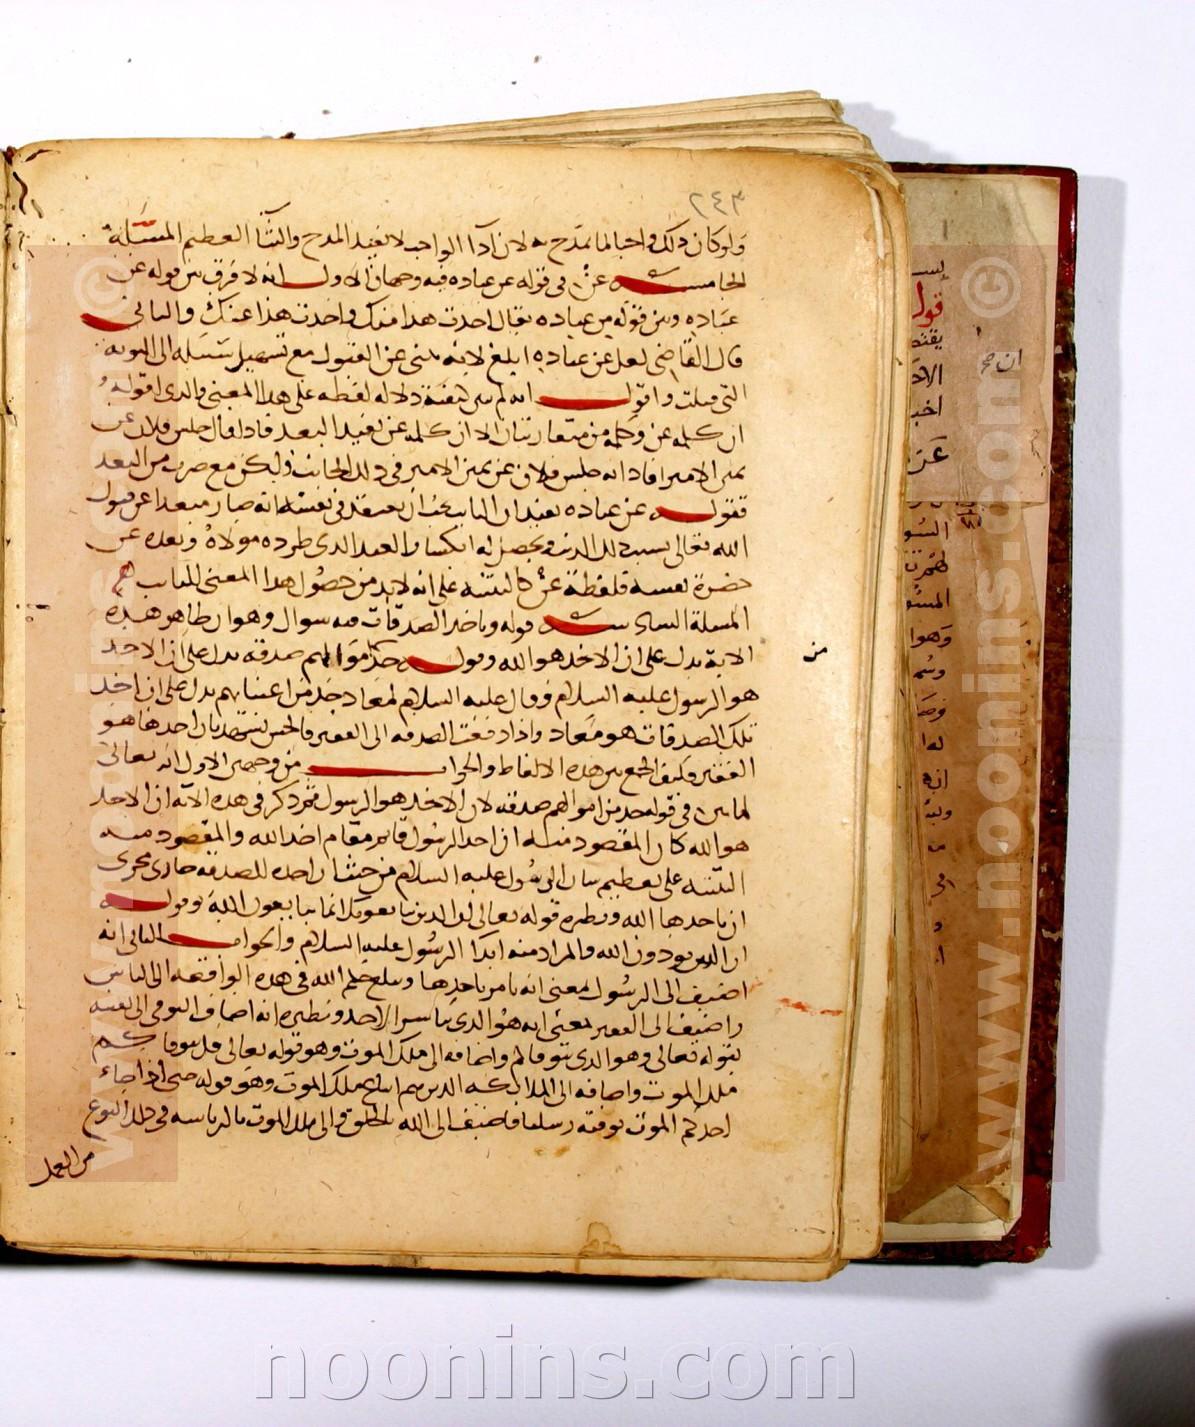 ٢٤٣
ولو كان ذلك واجبا لما تمدح به لان اداء الواجب لا يفيد المدح والثناء العظيم المسئلة
الخامسة عن في قوله عن عباده فيه وجهان الاول انه لا فرق بين قوله عن
عباده وبين قوله من عباده يقال اخذت هذا منك واخذت هذا عنك والثاني
قال القاضي لعل عن عباده ابلغ لانه ينبئ عن القبول مع تسهيل سبيله الى التوبة
التي قبلت واقول انه لم يبين كيفية دلالة لفظة على هذا المعنى والذي اقوله
ان كلمة عن وكلمة من متقاربتان الا ان كلمة عن تفيد البعد فاذا قال جلس فلان عن
يمين الامير افاد انه جلس فلان عن يمين الامير في ذلك الجانب ولكن مع ضرب من البعد
فقوله عن عباده يفيد ان التائب يجب ان يعتقد في نفسه انه صار مبعدا عن قبول
الله تعالى بسبب ذلك الذنب ويحصل له انكسار العبد الذي طرده مولاه وبعده عن
حضرة نفسه فلفظة عن كالتنبيه على انه لا بد من حصول هذا المعنى للتائب
المسلة السادسة قوله وياخذ الصدقات فيه سوال وهو ان ظاهر هذه
الاية يدل على ان الاخذ هو الله وقوله خذ من اموالهم صدقة يدل على ان الاخذ
من
هو الرسول عليه السلام وقال عليه السلام لمعاد خذ من اغنيائهم يدل على ان اخذ
تلك الصدقات هو معاد واذا دفعت الصدقة الى الفقير فالحس يشهد بان اخذها هو
الفقير فكيف الجمع بين هذه الالفاظ والجواب من وجهين الاول انه تعالى
لما بين في قوله خذ من اموالهم صدقة لان الاخذ هو الرسول ثم ذكر في هذه الاية ان الاخذ
هو الله كان المقصود منه ان اخذ الرسول قائم مقام اخذ الله والمقصود منه
التنبيه على تعظيم شان الرسول عليه السلام من حيث ان اخذه للصدقة جاري مجرى
ان ياخذها الله ونظيره قوله تعالى ان الذين يبايعونك انما يبايعون الله وقوله
ان الذين يوذون الله والمراد منه ايذا الرسول عليه السلام والجواب الثاني انه
اضيف الى الرسول بمعنى انه يامر باخذها ويبلغ حكم الله في هذه الواقعة الى الناس
واضيف الى الفقير بمعنى انه هو الذي يباشر الاخذ ونظيره انه اضاف التوفي الى نفسه
بقوله تعالى وهو الذي يتوفاكم واضافه الى ملك الموت وهو قوله تعالى قل يتوفاكم
ملك الموت واضافه الى الملائكة الذين هم اتباع ملك الموت وهو قوله حتى اذا جاء
احدكم الموت توفته رسلنا فاضيف الى الله الخلق والى ملك الموت بالرياسة في ذلك النوع
من العمل
ان صح
قول
www.noonins.com ©
www.noonins.com ©
noonins.com